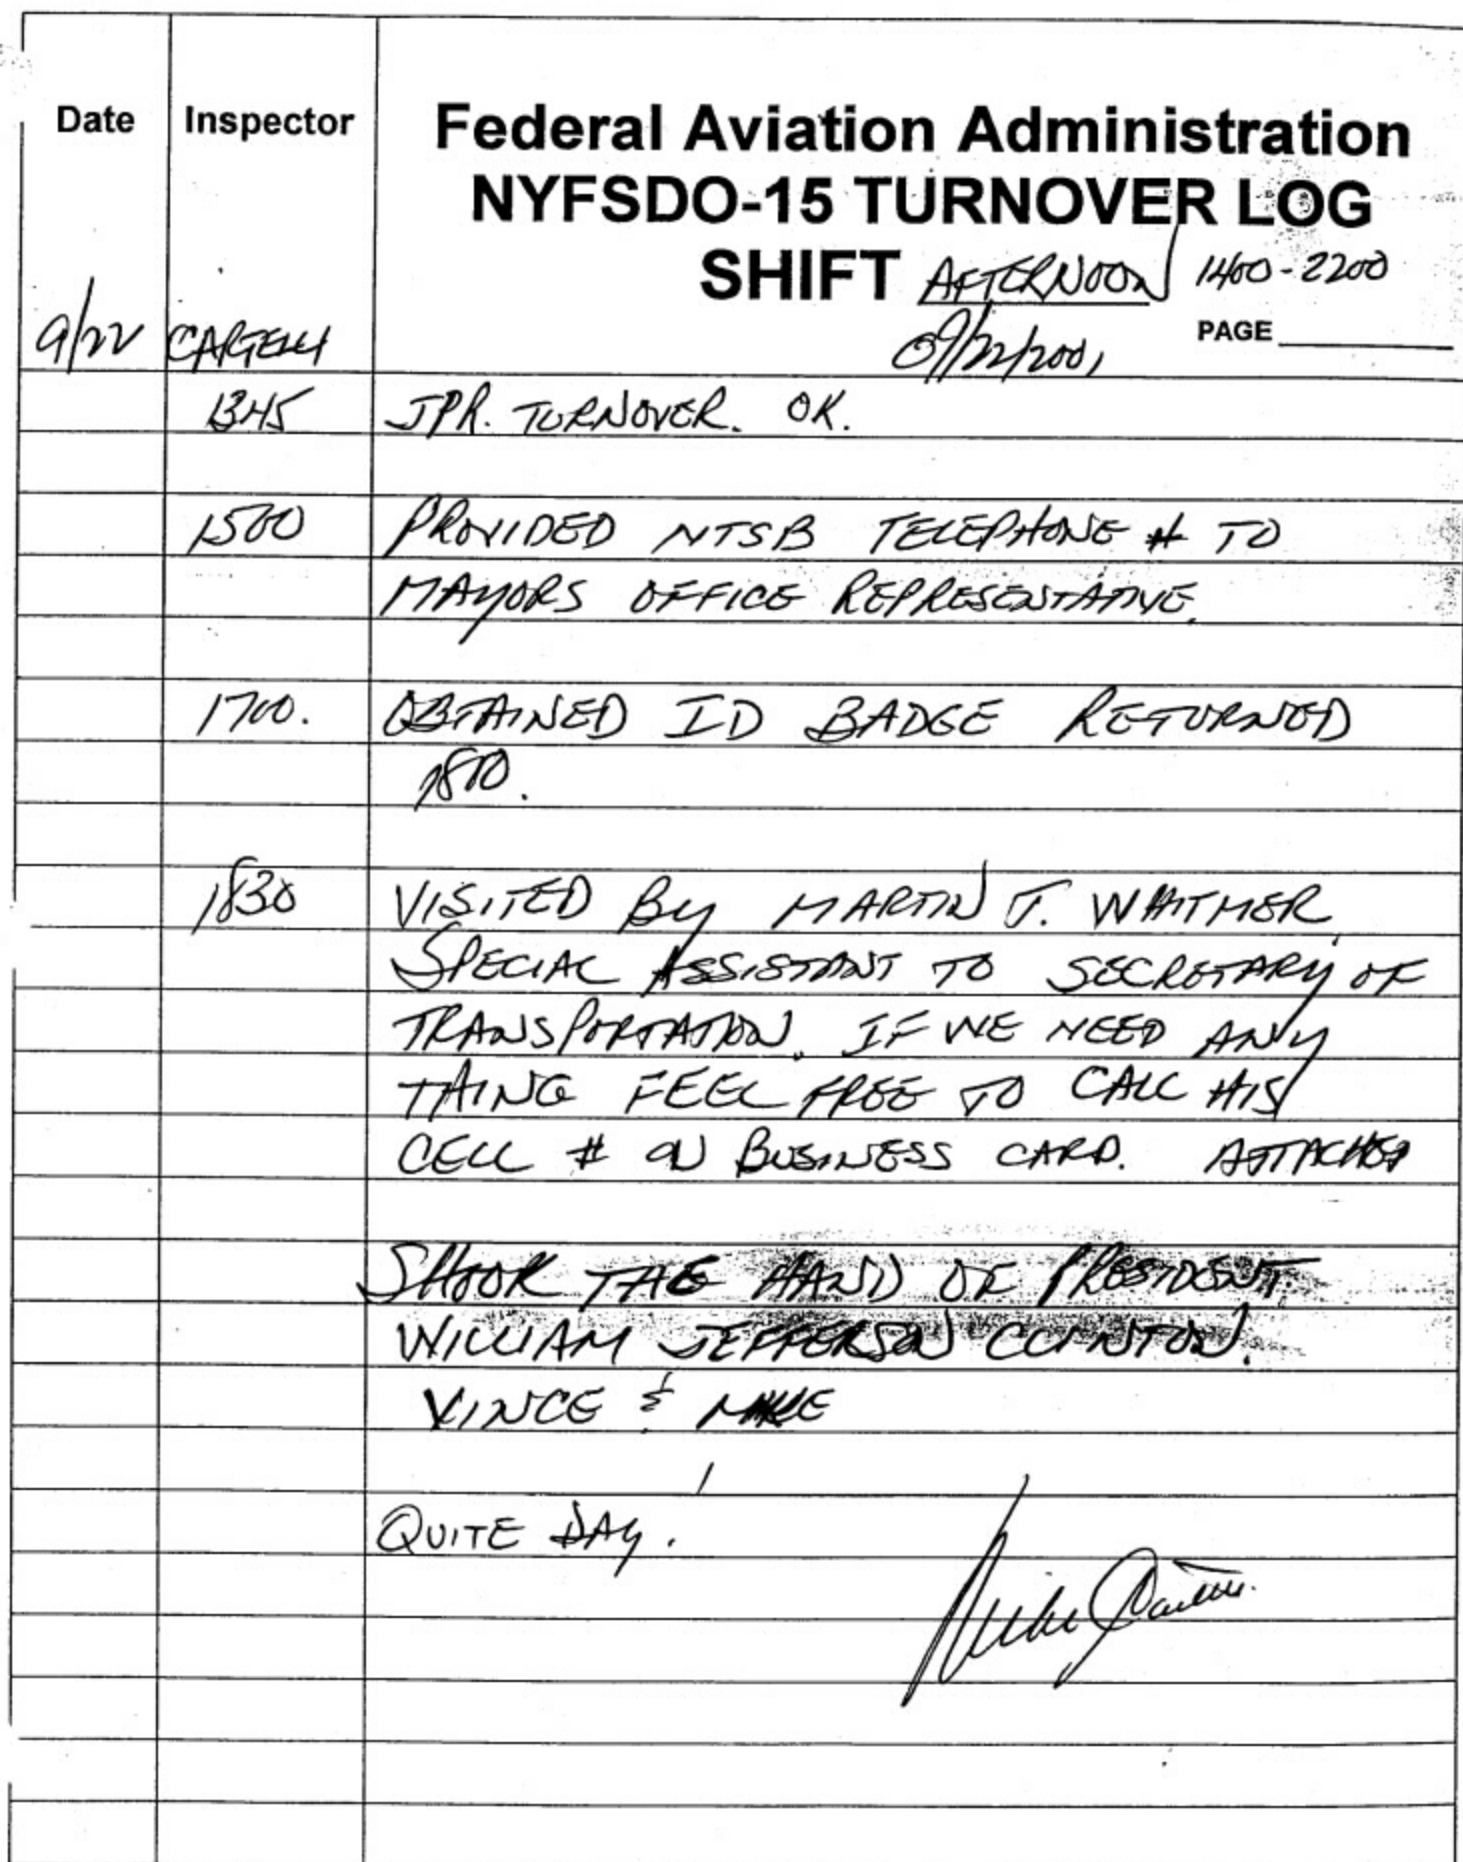 Date Inspector Federal Aviation Administration
NYFSDO-15 TURNOVER LOG
SHIFT AFTERNOON 1400-2200
PAGE
9/22 09/22/2001
1345 JPR. TURNOVER. OK.
1500 PROVIDED NTSB TELEPHONE # TO
MAYORS OFFICE REPRESENTATIVE.
1700. OBTAINED ID BADGE RETURNED
1830 VISITED BY MARTIN T. WHITMER,
SPECIAL ASSISTANT TO SECRETARY OF
TRANSPORTATION. IF WE NEED ANY
THING FEEL FREE TO CALL HIS
CELL # ON BUSINESS CARD. ATTACHED
SHOOK THE HAND OF PRESIDENT
WILLIAM JEFFERSON CLINTON.
VINCE & MIKE
QUITE DAY.